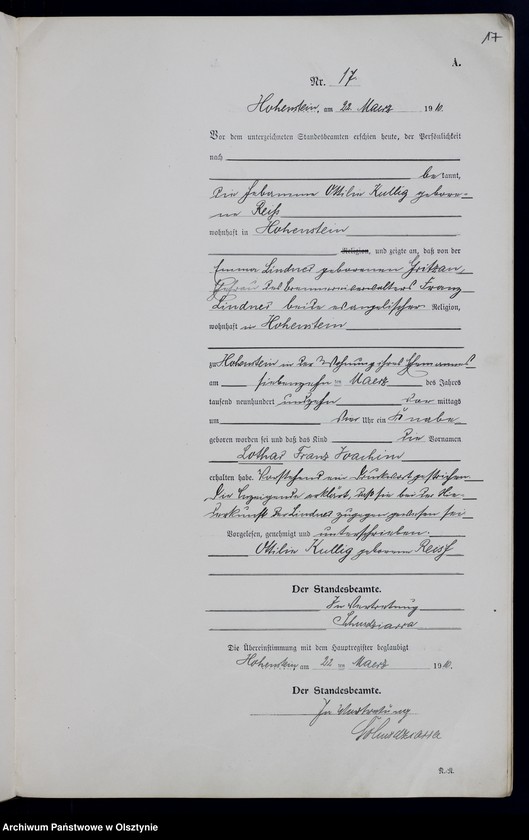 17
A.
Nr. 17
Hohenstein, am 22 Maerz 1910.
Vor dem unterzeichneten Standesbeamten erschien heute, der Persönlichkeit
nach
bekannt,
die Hebamme Ottilie Kullig gebore-
ne Reiß
wohnhaft in Hohenstein
Religion, und zeigte an, daß von der
Emma Lindner geborenen
Ehefrau des Franz
Lindner beide evangelischer Religion,
wohnhaft in Hohenstein
zu Hohenstein in der Wohnung ihres Ehemannes
am siebenzehn ten Maerz des Jahres
tausend neunhundert und zehn vor mittags
um vier Uhr ein Knabe
geboren worden sei und daß das Kind die Vornamen
Lothar Franz Joachim
erhalten habe. Vorstehend ein Druckwort gestrichen.
Die Anzeigende erklärt, daß sie bei der Nie-
derkunft der Lindner zugegen gewesen sei
Vorgelesen, genehmigt und unterschrieben.
Ottilie Kullig geborene Reiß
Der Standesbeamte.
In Vertretung
Die Übereinstimmung mit dem Hauptregister beglaubigt
Hohenstein am 22 ten Maerz 1910.
Der Standesbeamte.
In Vertretung
Archiwum Państwowe w Olsztynie